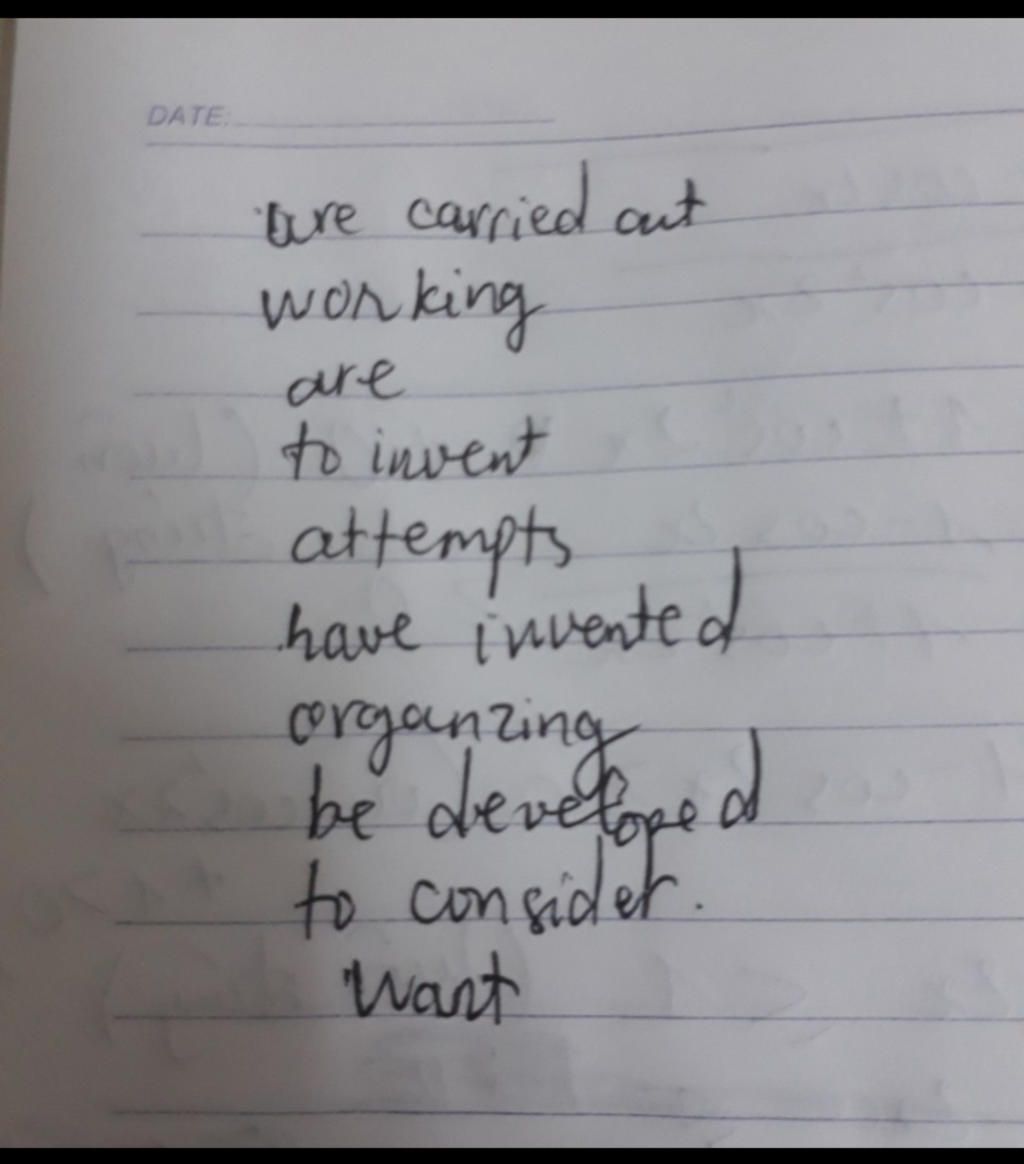 DATE:
are carried out
working
are
to invent
attempts
have invented
organzing
be developed
to consider.
want